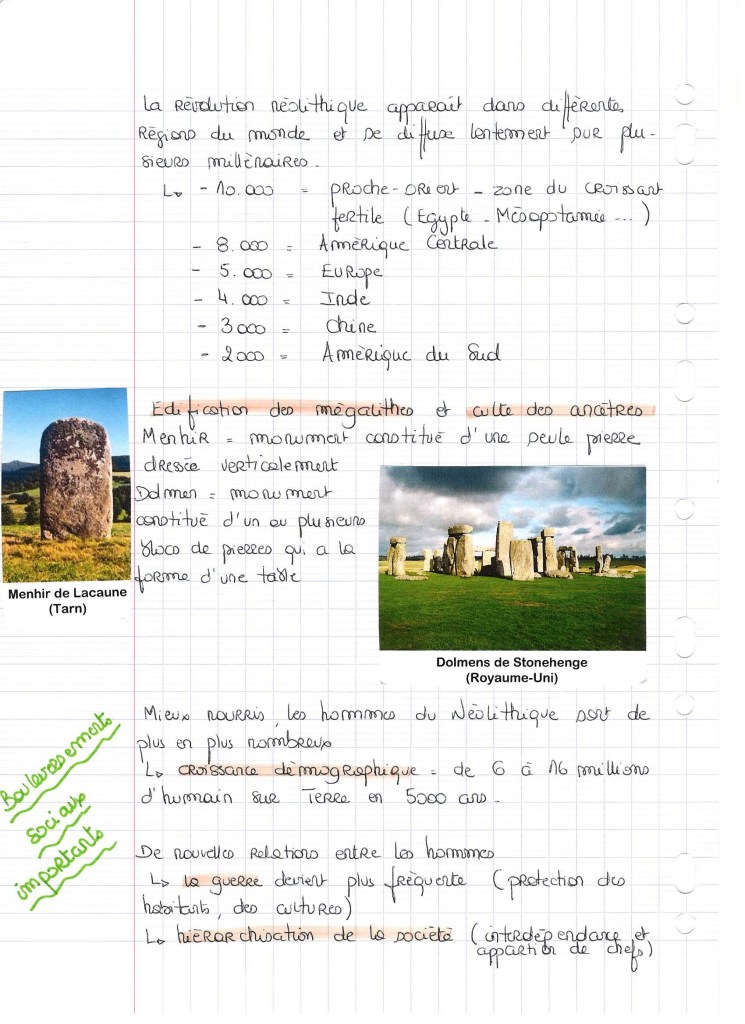 La Révolution néolithique apparaît dans différentes
Régions du monde et se diffuse lentement sur plu-
sieurs millénaires.
↳ - 10.000 = Proche-Orient - zone du croissant
fertile (Egypte - Mésopotamie...)
- 8.000 = Amérique Centrale
- 5.000 = Europe
- 4.000 = Inde
- 3000 = Chine
- 2000 = Amérique du Sud
Edification des mégalithes et culte des ancêtres
Menhir = monument constitué d'une seule pierre
dressée verticalement
Dolmen = monument
constitué d'un ou plusieurs
blocs de pierres qui a la
forme d'une table
Menhir de Lacaune
(Tarn)
Dolmens de Stonehenge
(Royaume-Uni)
Mieux nourris, les hommes du Néolithique sont de
plus en plus nombreux
↳ croissance démographique = de 6 à 16 millions
d'humain sur Terre en 5000 ans.
Bouleversements
sociaux
importants
De nouvelles Relations entre les hommes
↳ la guerre devient plus fréquente (protection des
habitants, des cultures)
↳ hiérarchisation de la société (interdépendance et
appartion de chefs)